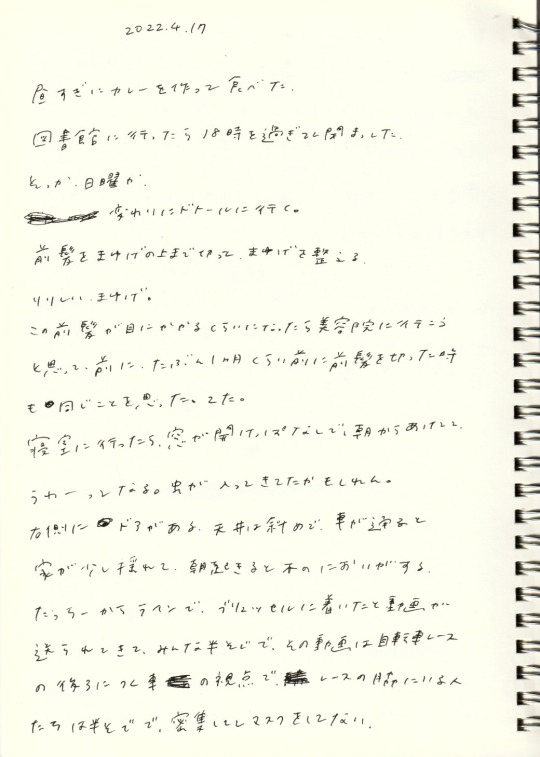 2022.4.17
昼すぎにカレーを作って食べた.
図書館に行ったら18時を過ぎてし閉ました.
そっか.日曜か.
変わりにドトールに行く。
前髪をまゆげの上まで切って,まゆげを整える.
りりしい,まゆげ。
この前髪が目にかかるくらいになったら美容院に行こう
と思って,前に,たぶん1ヶ月くらい前に前髪を切った時
も同じことを思った。
寝室に行ったら,窓が開けっぱなしで,朝からあけてて
うわーってなる。虫が入ってきてたかもしれん。
右側にドアがある.天井は斜めで,車が通ると
家が少し揺れて,朝起きると木のにおいがする.
たっちーからラインで,ブリュッセルに着いたと動画が
送られてきて,みんな半そで,その動画は自転車レース
の後ろにつく車の視点で,レースの脇にいる人
たちは半そでで,密集してしマスクをしてない.